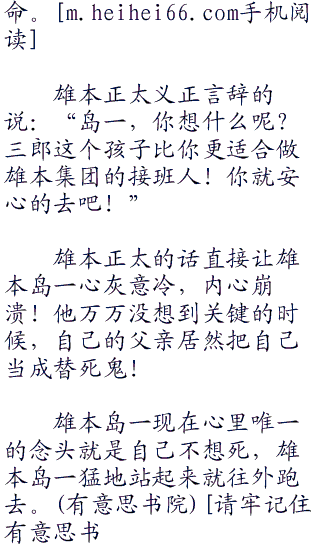 命。[m.heihei66.com手机阅
读]
雄本正太义正言辞的
说：“岛一，你想什么呢？
三郎这个孩子比你更适合做
雄本集团的接班人！你就安
心的去吧！”
雄本正太的话直接让雄
本岛一心灰意冷，内心崩
溃！他万万没想到关键的时
候，自己的父亲居然把自己
当成替死鬼！
雄本岛一现在心里唯一
的念头就是自己不想死，雄
本岛一猛地站起来就往外跑
去。(有意思书院)[请牢记住
有意思书